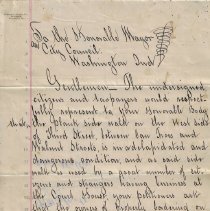 To the Honorable Mayor
and City Council.
Washington Ind
Gentlemen — The undersigned
citizens and taxpayers would respect-
fully represent to your Honorable Body
that the plank side walk on the West side
of Third Street, between Van Trees and
Walnut Streets, is in a dilapidated and
dangerous condition, and as said side
walk is used by a great number of cit-
izens and strangers having business at
the Court House your petitioners ask
that the owners of property